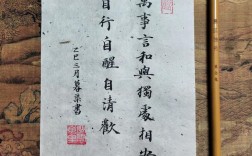 萬事言和與獨處相安
自行自醒自清歡
乙巳三月暮柒書